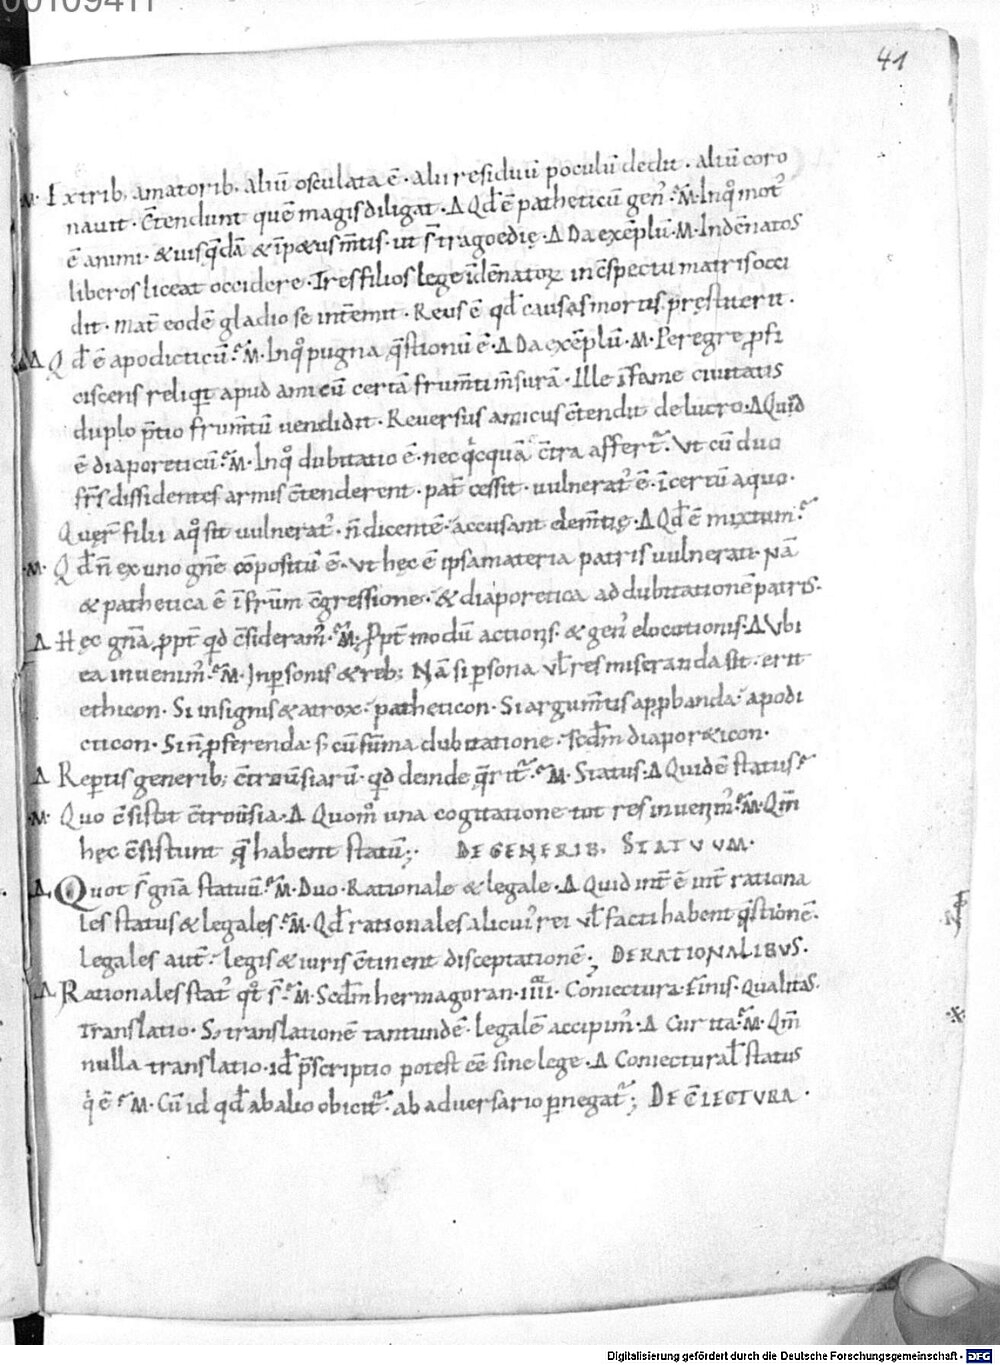 00109411
41
M· Extrib; amatorib; aliū osculata ē· alii residuū poculū dedit· aliū coro
nauit· c̄tendunt quē magis diligat· Δ Qd̄ ē patheticū gen᾿ M· In q̊ mot᾿
ē animi· & uis q̄dā & īp&us m̄tis· ut s̄ tragoedię· Δ Da exēplū· M· Indēnatos
liberos liceat occidere· Tres filios lege īdēnatoꝝ in c̄spectu matris occi
dit· mat̄ eodē gladio se intēmit· Reus ē qd̄ causas mortis pręstiterit·
Δ Qd̄ ē apodicticū M· In q̊ pugna q̄stionū ē· Δ Da exēplū· M· Peregre ꝓfi
ciscens reliqt apud amicū certā frum̄ti m̄surā· Ille ī fame ciuitatis
duplo p̄tio frum̄tū uendidit· Reuersus amicus c̄tendit de lucro· Δ Quid
ē diaporeticū M· In q̊ dubitatio ē· nec qcquā c̄tra affert᾿ Vt cū duo
fr̄s dissidentes armis c̄tenderent· pat̄ cessit· uulnerat᾿ ē· īcertū a quo·
Quer̄ filii a q̊ sit uulnerat᾿· n̄ dicentē· accusant dem̄tię· Δ Qd̄ ē mixtum
M· Qd̄ n̄ ex uno gn̄e cōpositū ē· Vt hęc ē ipsa materia patris uulnerati· Nā
& pathetica ē ī frūm c̄gressione· & diaporetica ad dubitationē patris·
Δ Hęc gn̄a ꝓpt̄ qd c̄sideram᾿ M· Ꝓpt̄ modū actionis· & gen᾿ elocutionis· Δ Vbi
ea inuenim᾿ M· In psonis & reb; Nā si psona ul̄ res miseranda sit· erit
ethicon· Si insignis & atrox· patheticon· Si argum̄tis appbanda· apodi
cticon· Si n̄ ꝓferenda· s; cū sūma dubitatione· sc̄dm diapor&icon·
Δ Repertis generib; c̄trouersiarū· qd deinde q̄rit᾿ M· Status· Δ Quid ē status
M· Quo c̄sistit c̄trou̅sia· Δ Quom̊ una cogitatione tot res inuenim᾿ M· Qm̄
hęc c̄sistunt q̄ habent statū; DE GENERIB; STATVVM·
Δ Quot s̄ gn̄a statuū M· Duo· Rationale & legale· Δ Quid int̄ ē int̄ rationa
les status & legales M· Qd̄ rationales alicui᾿ rei ul̄ facti habent q̄stionē·
legales aut̄· legis & iuris c̄tinent disceptationē; DE RATIONALIBVS·
Δ Rationales stat᾿ qt̊ s̄ M· Scdm̄ hermagoran· IIII· Coniectura· finis· qualitas·
translatio· S; translationē tantundē· legalē accipim᾿ Δ Cur ita M· Qm̄
nulla translatio· id p̄scriptio potest eē sine lege· Δ Coniectural̄ status
q̊ ē M· Cū id qd̄ ab alio obicit᾿ ab aduersario p̱negat᾿; DE C̄IECTVRA·
Digitalisierung gefördert durch die Deutsche Forschungsgemeinschaft - DFG